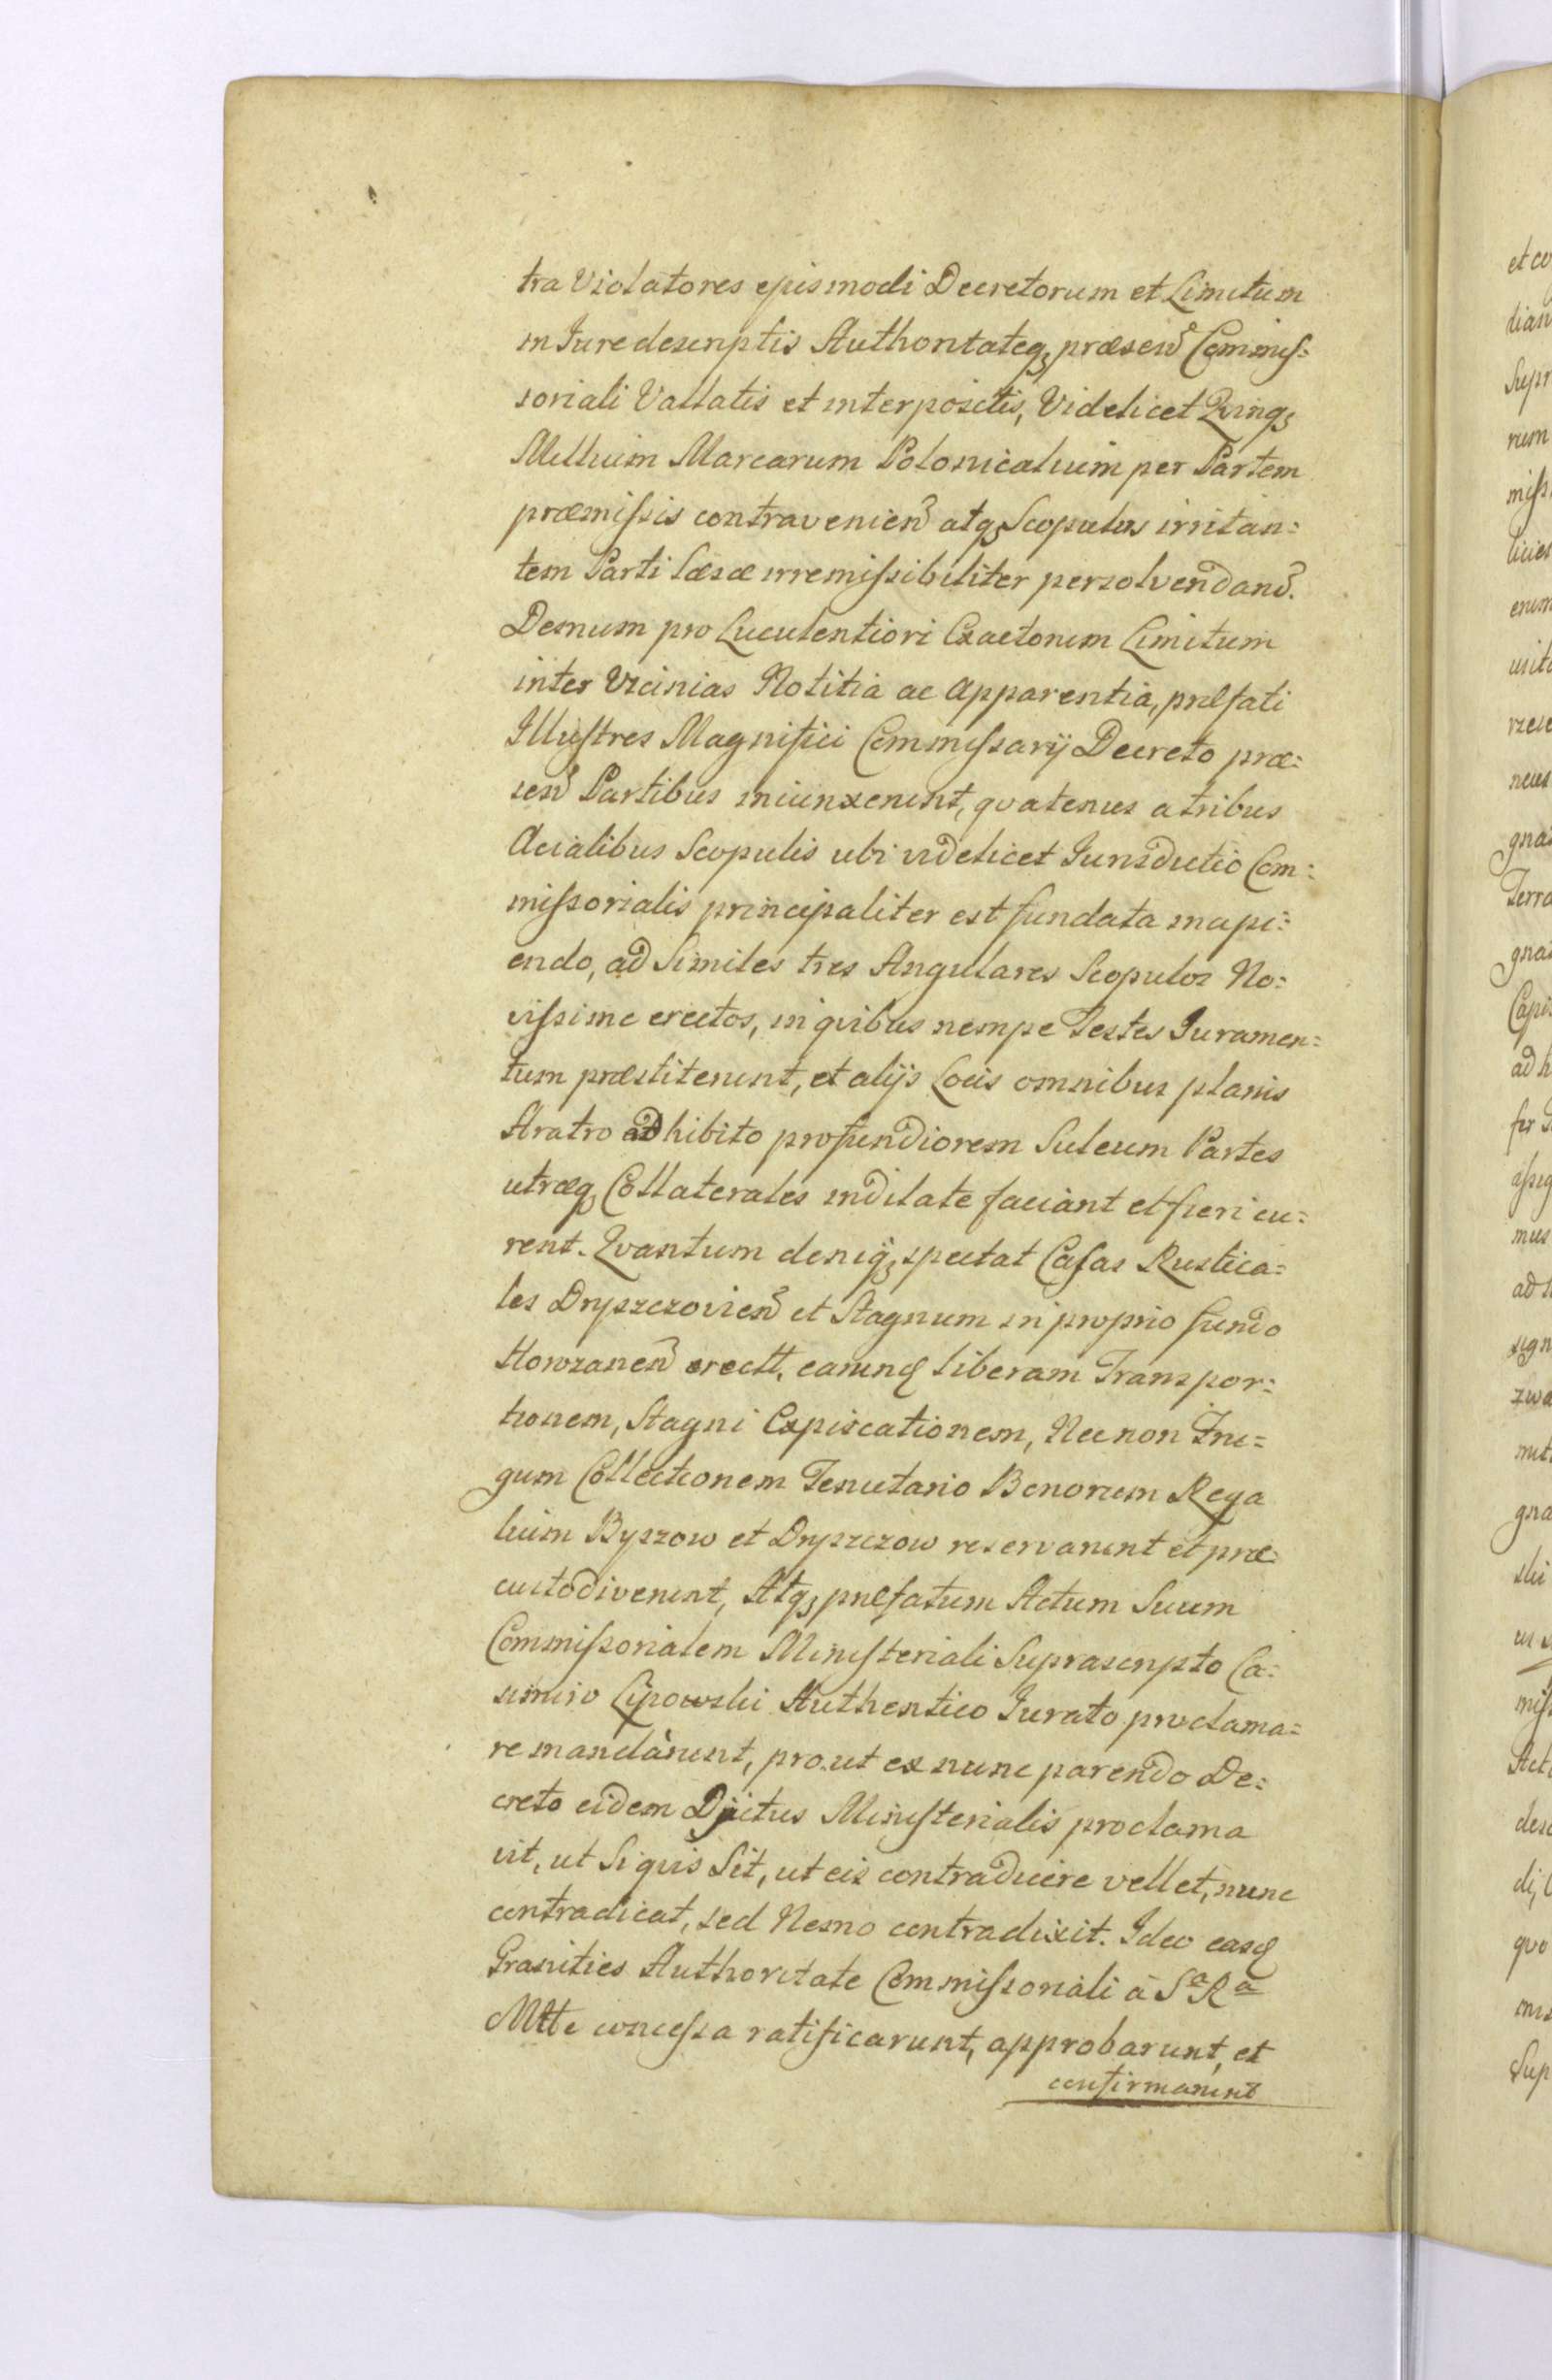 tra Violatores ejusmodi Decretorum et Limitum
in Jure descriptis Authoritateq; præsen Commis=
soriali Vallatis et interpositis, Videlicet Quinq;
Millium Marcarum Polonicalium per Partem
præmissis contravenien atq; Scopulos irritan=
tem Parti læsæ irremissibiliter persolvendan.
Demum pro Luculentiori Exactorum Limitum
inter Vicinias Notitia ac apparentia, præfati
Illustres Magnifici Commissarij Decreto præ=
sen Partibus iniunxerunt, qvatenus a tribus
Acialibus Scopulis ubi videlicet Jurisdictio Com=
missorialis principaliter est fundata incipi=
endo, ad Similes tres Angulares Scopulos No=
vissime erectos, in qvibus nempe Testes Juramen=
tum præstiterunt, et alijs Locis omnibus planis
Aratro adhibito profundiorem Sulcum Partes
utræq; Collaterales indilate faciant et fieri cu=
rent. Qvantum deniq; spectat Casas Rustica=
les Dryszczovien et Stagnum in proprio fundo
Horozanen erectt, earunq liberam Transpor=
tionem, Stagni Expiscationem, Nec non Fru=
gum Collectionem Tenutario Bonorum Rega
lium Byszow et Dryszczow reservarunt et præ
custodiverunt, Atq; præfatum Actum Suum
Commissorialem Ministeriali Suprascripto Ca=
simiro Lipowski Authentico Jurato proclama=
re mandàrunt, prout ex nunc parendo De=
creto eidem Dictus Ministerialis proclama
vit, ut Si qvis Sit, ut eis contradicere vellet, nunc
contradicat, sed Nemo contradixit. Ideo easq
Granities Authoritate Commissoriali à Sa Ra
Mtte concessa ratificarunt, approbarunt, et
confirmarunt